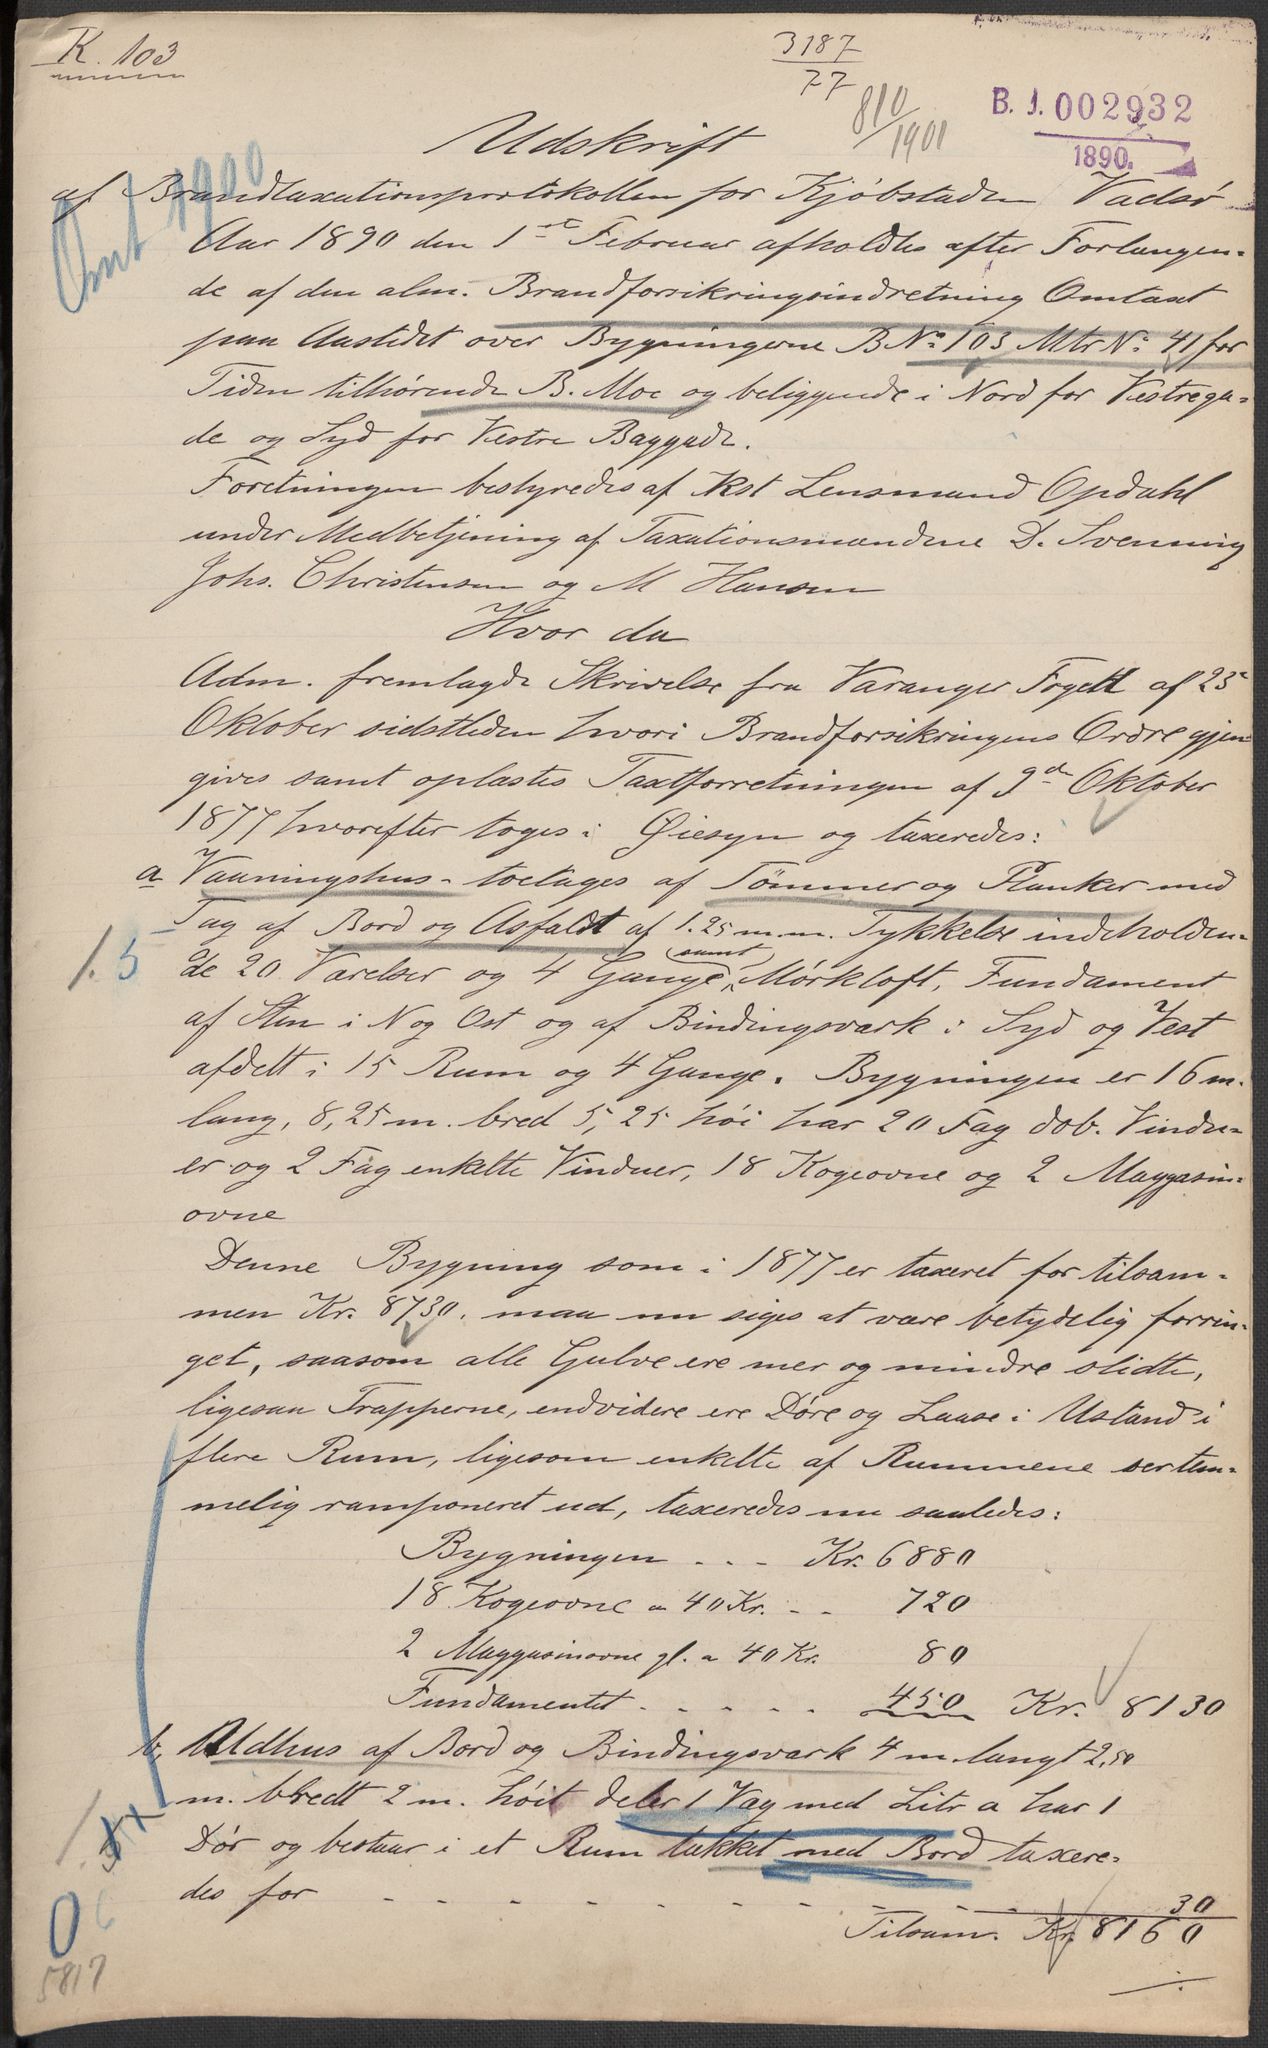 K. 103
3187
77
810
1901
B. J. 002932
1890.
Omt 1900
Udskrift
af Brandtaxationsprotokollen for Kjøbstaden Vadsø
Aar 1890 den 1ste Februar afholdtes efter Forlangen-
de af den alm. Brandforsikringsindretning Omtaxt
paa Aastedet over Bygningerne BNo 103 Mtr No 41 for
Tiden tilhørende B. Moe og beliggende i Nord for Vestrega-
de og Syd for Vestre Baggade.
Forretningen bestyredes af Kst Lensmand Opdahl
under Medbetjening af Taxationsmændene D. Svenning
Johs. Christensen og M Hansen
Hvor da
Adm. fremlagde Skrivelse fra Varanger Fogett af 25
Oktober sidstleden hvori Brandforsikringens Ordre gjen
gives samt oplæstes Taxtforretningen af 9de Oktober
1877 hvorefter toges i Øiesyn og taxeredes:
a Vaaningshus- toetages af Tømmer og Planker med
Tag af Bord og Asfaldt af 1.25 m.m. Tykkelse indeholden-
1.5
de 20 Værelser og 4 Gange, samt Mørkloft, Fundament
af Sten i N og Ost og af Bindingsværk i Syd og Vest
afdelt i 15 Rum og 4 Gange. Bygningen er 16 m.
lang, 8,25 m. bred 5,25 høi har 20 Fag dob. Vindu-
er og 2 Fag enkelte Vinduer, 18 Kogeovne og 2 Maggasin-
ovne
Denne Bygning som i 1877 er taxeret for tilsam-
men Kr. 8730. maa nu siges at være betydelig forrin-
get, saasom alle Gulve ere mer og mindre slidte,
ligesaa Trapperne, endvidere ere Døre og Laase i Ustand i
flere Rum, ligesom enkelte af Rummene ser tem-
melig ramponeret ud, taxeredes nu saaledes:
Bygningen - - - Kr. 6880
18 Kogeovne a 40 Kr. - - 720
2 Maggasinovne gl. a 40 Kr. 80
Fundamentet - - - - - 450 Kr. 8130
b, Udhus af Bord og Bindingsværk 4 m. langt 2,50
m. bredt 2 m. høit deler 1 Væg med Litr a har 1
Dør og bestaar i et Rum tækket med Bord taxere-
des for - - - - - - - - - 30
Tilsam. Kr. 8160
0
5817